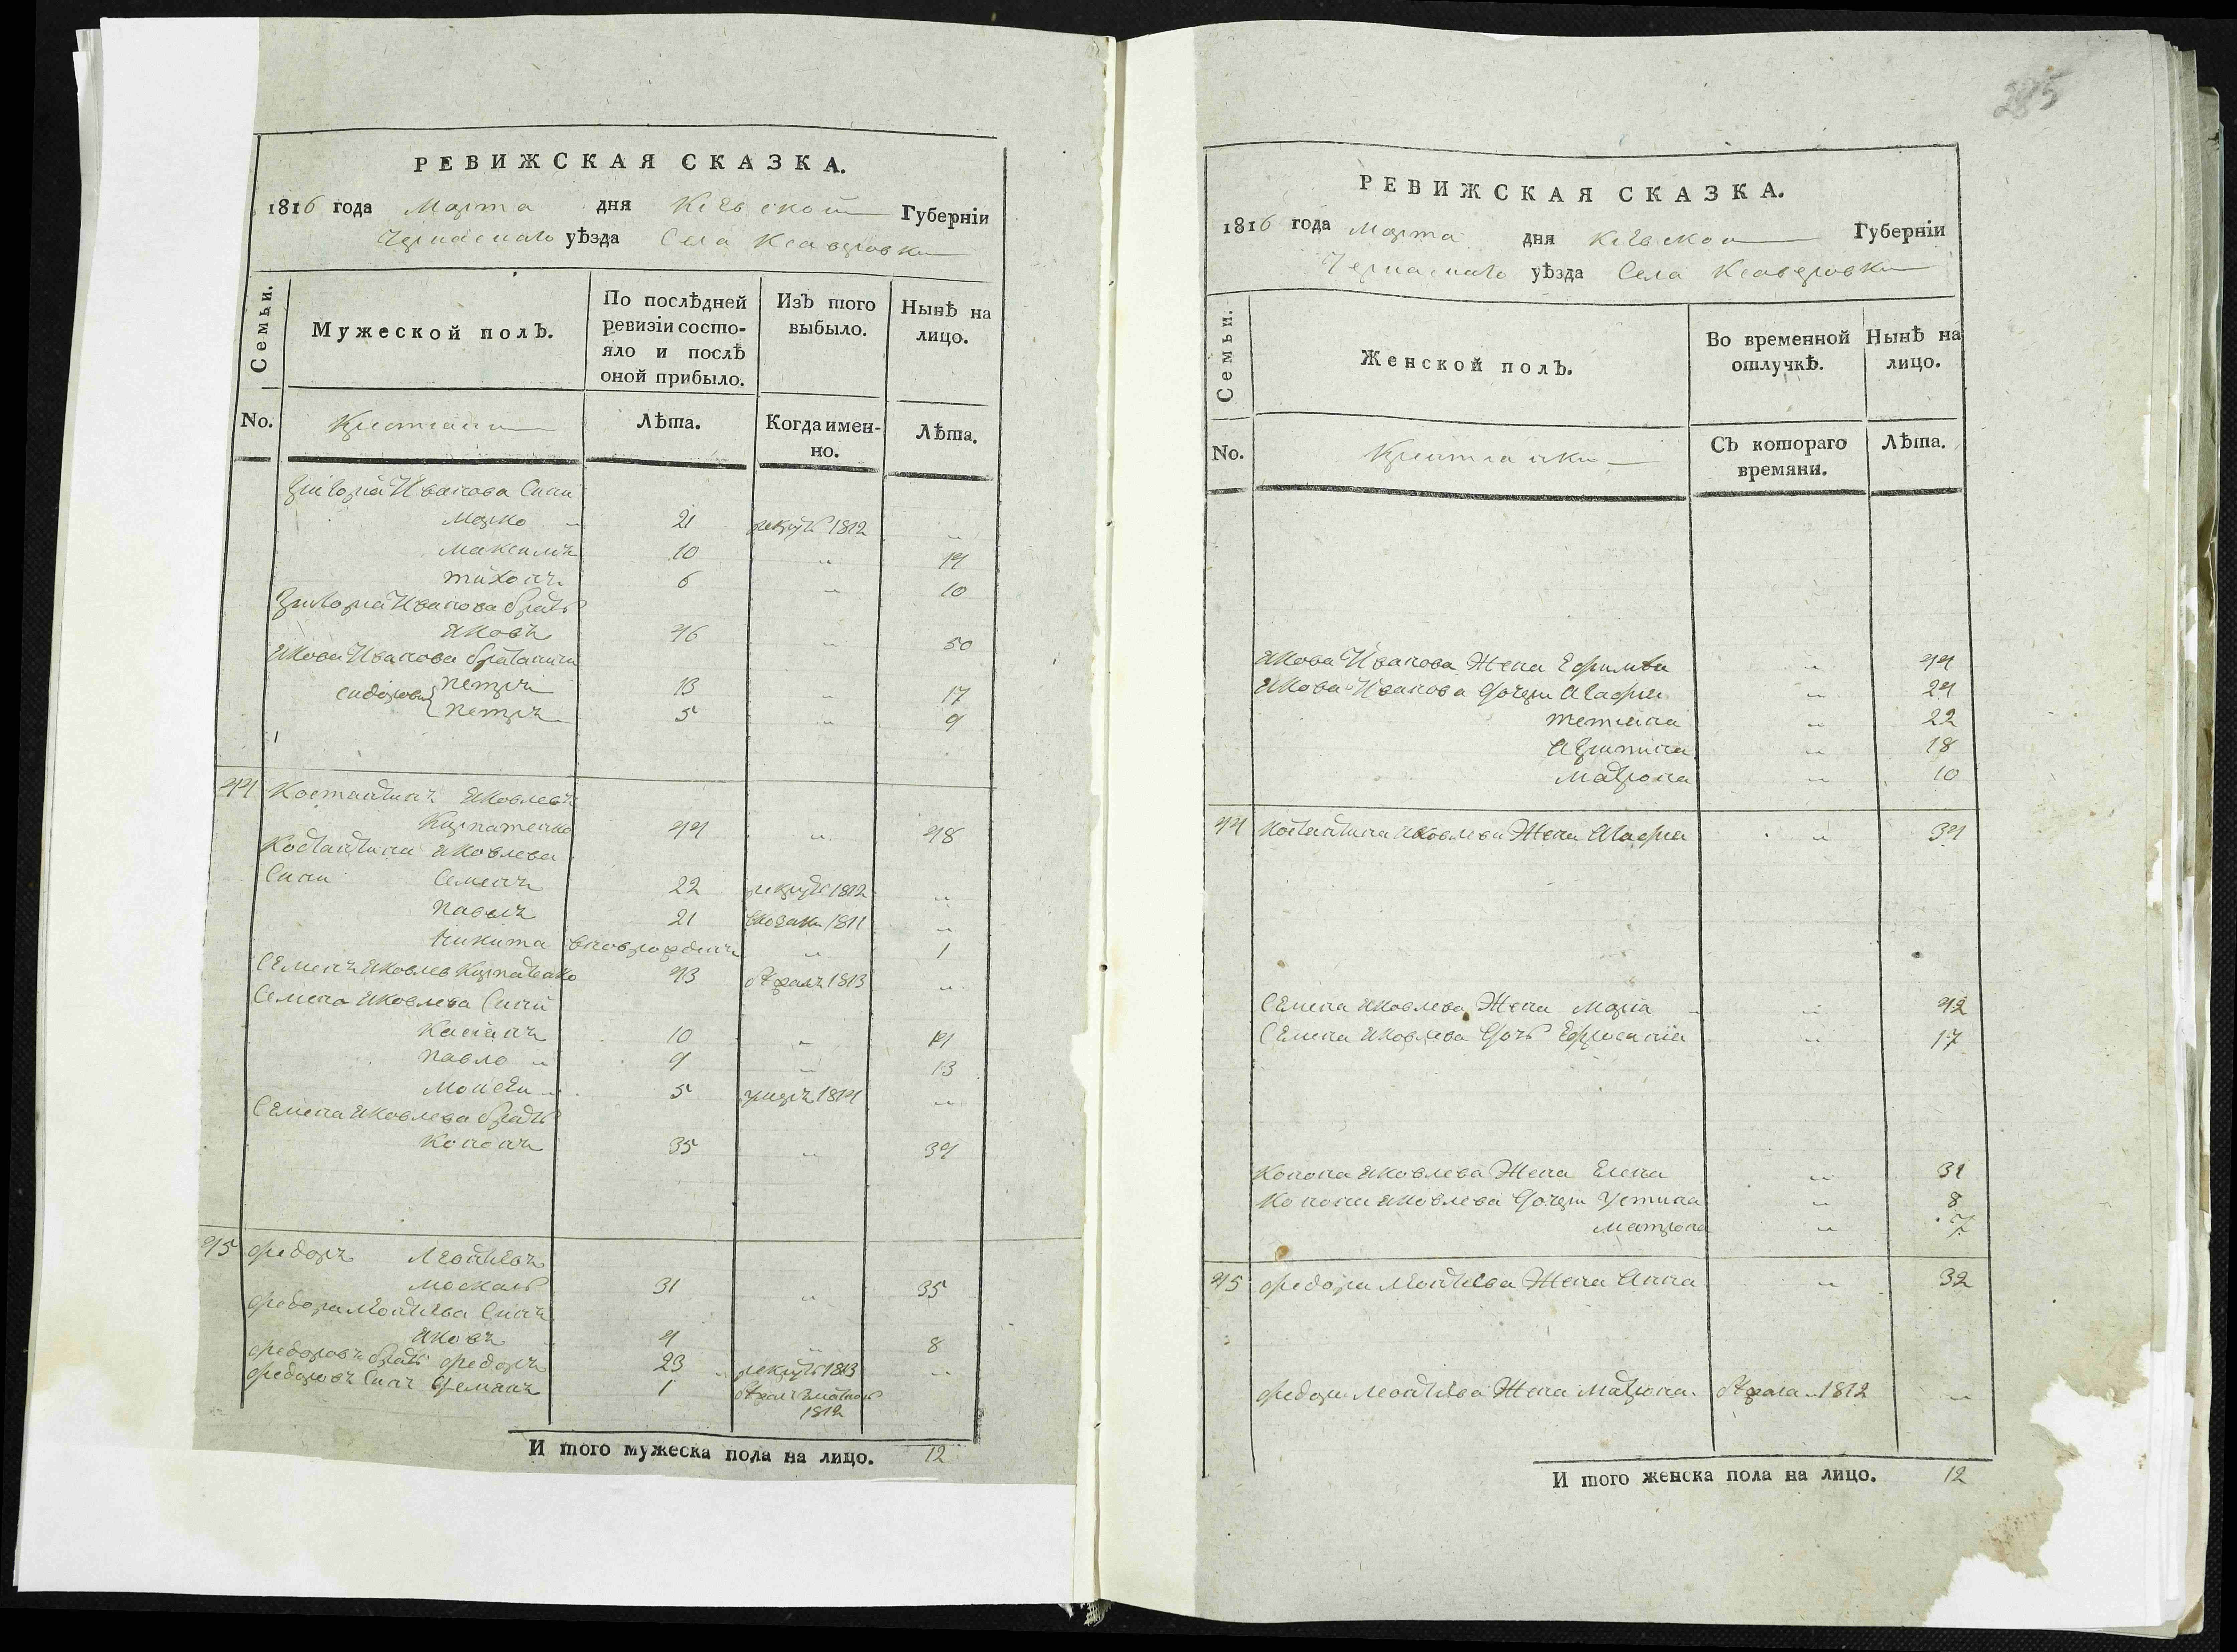 РЕВИЖСКАЯ СКАЗКА.
1816 года Марта дня Киевской Губерніи
Черкаскаго уѣзда Села Ксаверовки
Семьи.
Мужеской полЪ.
По послѣдней ревизіи состояло и послѣ оной прибыло.
ИзЪ того выбыло.
Нынѣ на лицо.
No.
Крестяни
Лѣта.
Когда именно.
Лѣта.
Григорія Иванова Сини
Марко 21 рекрутъ 1812 „
Максимъ 10 „ 14
тихонъ 6 „ 10
Григорія Иванова братъ
Яковъ 46 „ 50
Якова Иванова братаничи
Сидоровы Петръ 13 „ 17
Петръ 5 „ 9
44 Костантинъ Яковлевъ
44 „ 48
Костантина Яковлева
Сини Семенъ 22 рекрутъ 1812 „
Павелъ 21 1811 „
Никита вновърожденъ „ 1
Семенъ Яковлев 43 1813 „
Семена Яковлева Сини
Касіянъ 10 „ 14
Павло 9 „ 13
Моисей 5 умеръ 1814 „
Семена Яковлева братъ
Кононъ 35 „ 39
45 Федоръ Леонтіевъ
Москаль 31 „ 35
Федора Леонтіева Синъ
Яковъ 4 „ 8
Федоровъ братъ Федоръ 23 рекрутъ 1813 „
Федоровъ Синъ Демянъ 1
1812
И того мужеска пола на лицо. 12
285
РЕВИЖСКАЯ СКАЗКА.
1816 года Марта дня Киевской Губерніи
Черкаскаго уѣзда Села Ксаверовки
Семьи.
Женской полЪ.
Во временной отлучкѣ.
Нынѣ на лицо.
No.
Крестянки
СЪ котораго времяни.
Лѣта.
Якова Иванова Жена 44
Якова Иванова Дочери Агафия „ 24
тетяна „ 22
Агрипина „ 18
Матрона „ 10
44 Костантина Яковлева Жена Агафия „ 34
Семена Яковлева Жена Марія „ 42
Семена Яковлева Дочь Ефросинія „ 17
Конона Яковлева Жена Елена „ 31
Конона Яковлева Дочери Устина „ 8
Матрона „ 7
45 Федора Леонтіева Жена Анна „ 32
Федора Леонтіева Жена Матрона 1812 „
И того женска пола на лицо. 12